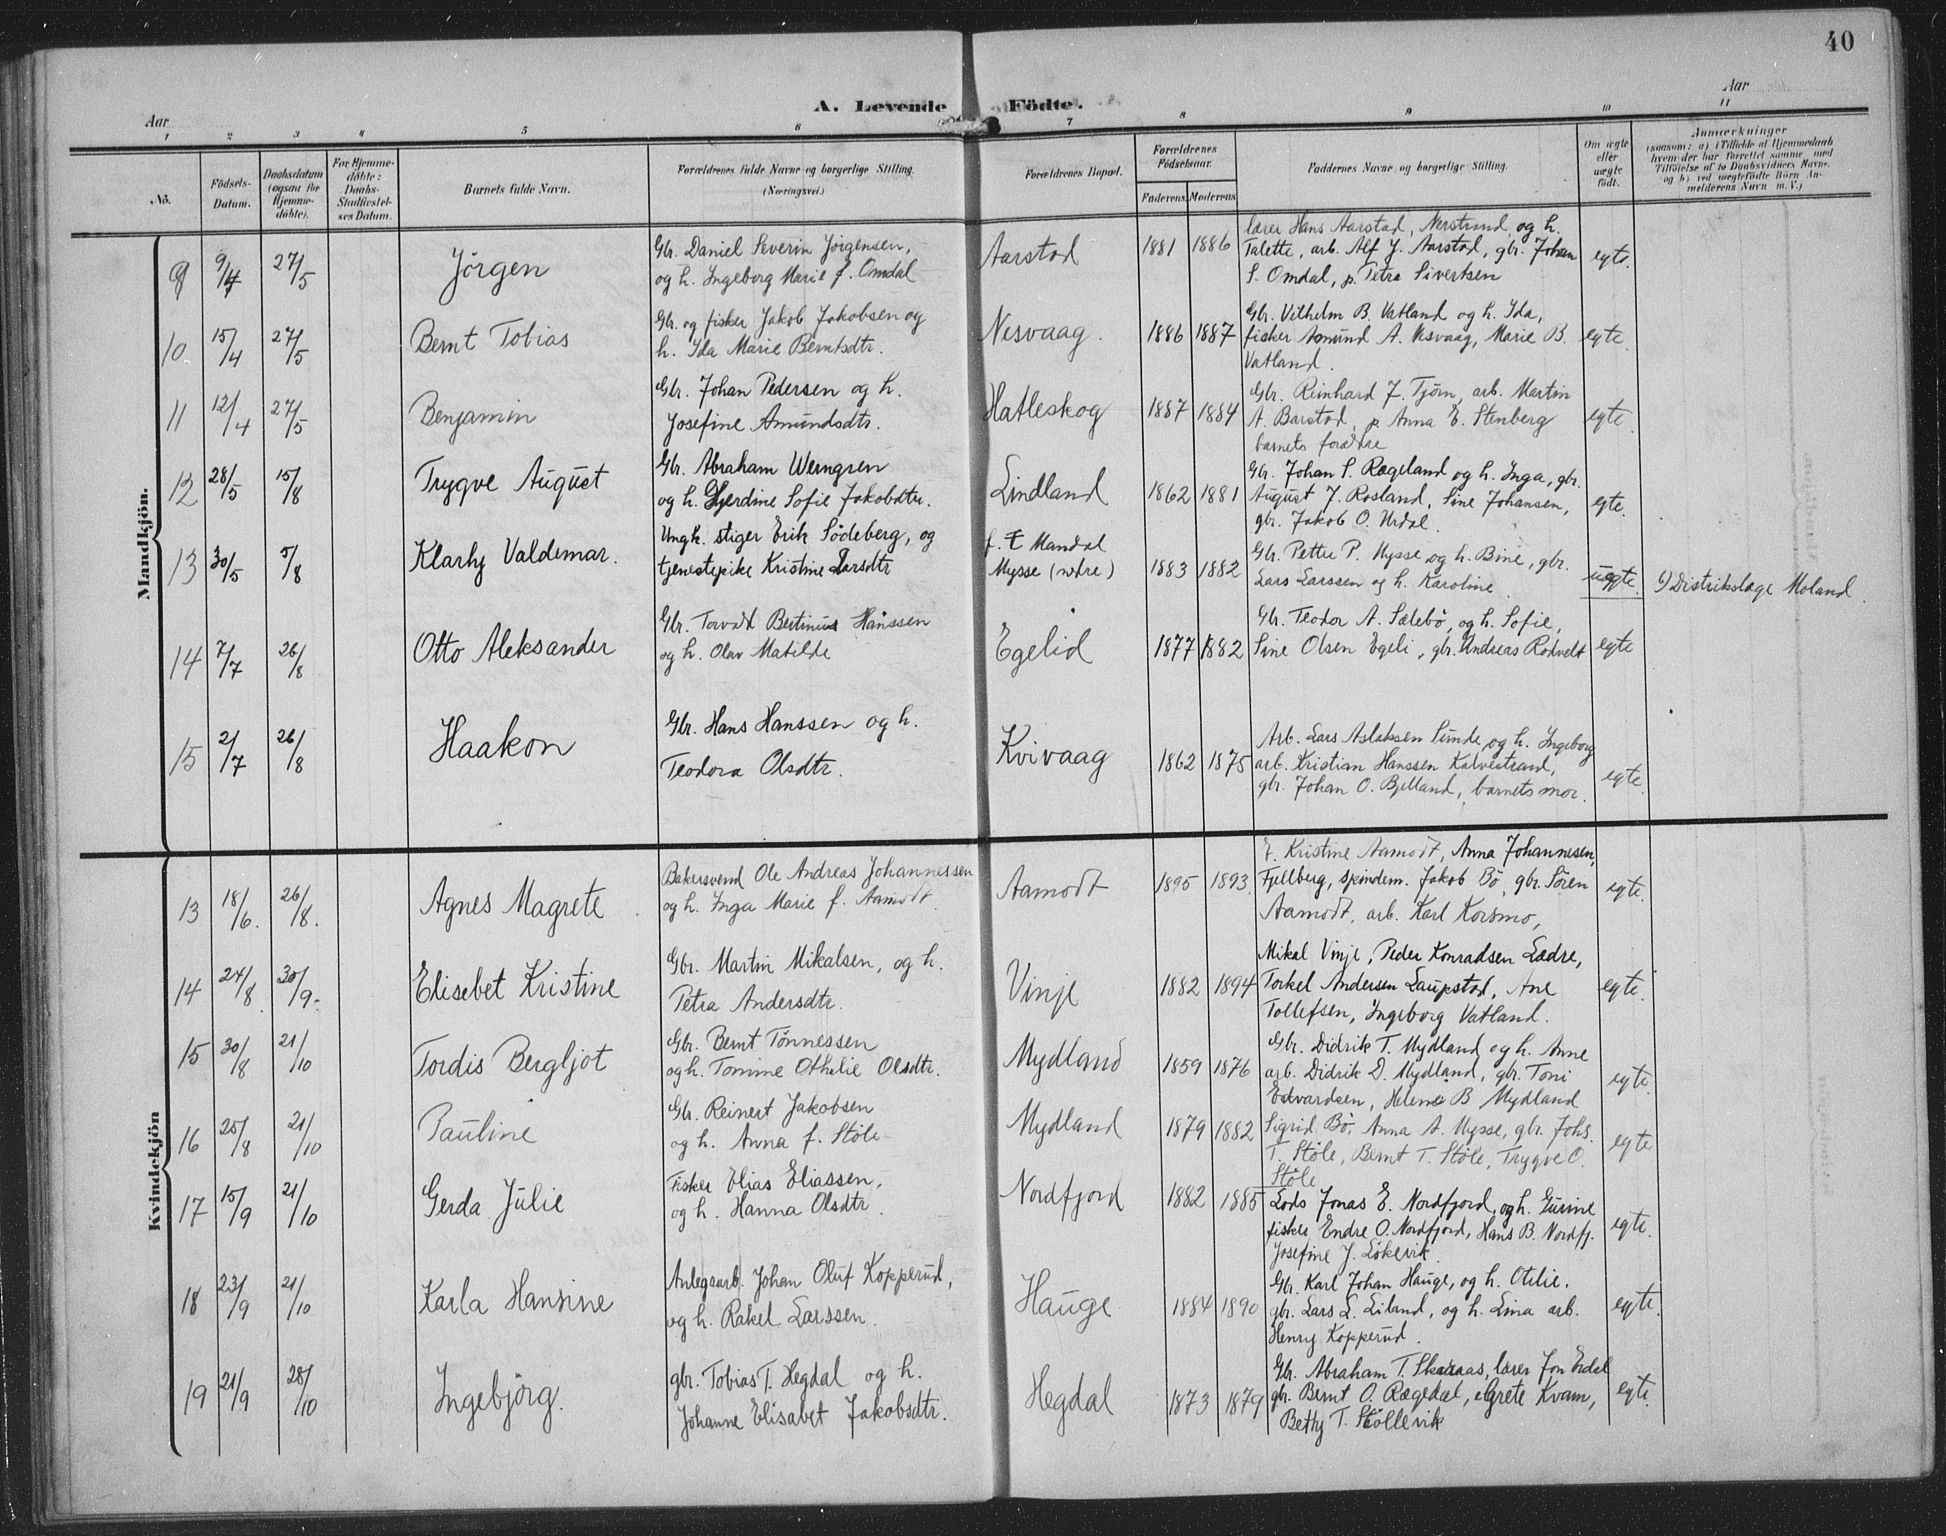 40
A. Levende Födte.
Aar Aar
1 2 3 4 5 6 7 8 9 10 11
No. Födsels-Datum. Daabsdatum (ogsaa for Hjemme-döbte). For Hjemme-döbte: Daabs-Stadfæstel-ses Datum. Barnets fulde Navn. Forældrenes fulde Navne og borgerlige Stilling. (Næringsvei.) Forældrenes Bopæl. Forældrenes Födselsaar. Faderens. Moderens Faddernes Navne og borgerlige Stilling. Om ægte eller uægte födt. Anmærkninger (saasom: a) i Tilfælde af Hjemmedaab hvem der har forrettet samme med Tilföielse af to Daabsvidners Navne. og b) ved uægtefödte Börn An-melderens Navn m. V.)
Mandkjön.
9 9/4 27/5 Jörgen Gbr. Daniel Severin Jörgensen, og h. Ingeborg Marie f. Omdal Aarstad 1881 1886 lærer Hans Aarstad, Nerstrand, og h. Talette, arb. Alf J. Aarstad, gbr. Johan S. Omdal, p. Petra Sivertsen egte.
10 15/4 27/5 Bernt Tobias Gbr. og fisker Jakob Jakobsen og h. Ida Marie Berntsdtr. Nesvaag. 1886 1887 Gbr. Vilhelm B. Vatland og h. Ida, fisker Asmund A. Nesvaag, Marie B. Vatland. egte.
11 12/4 27/5 Benjamin Gbr. Johan Pedersen og h. Josefine Amundsdtr. Hatleskog 1887 1884 Gbr. Reinhard J. Tjörn, arb. Martin A. Barstad, p. Anna E. Stenberg barnets forældre egte.
12 28/5 15/8 Trygve August Gbr. Abraham Werngren og h. Gjerdine Sofie Jakobdtr. Lindland 1862 1881 Gbr. Johan S. Rægeland og h. Inga, gbr. August J. Rosland, Sine Johansen, gbr. Jakob O. Urdal. egte.
13 30/5 5/8 Klarhy Valdemar. Ungk. stiger Erik Södeberg, og tjenestepike Kristine Larsdtr f. t Mandal Mysse (nedre) 1883 1882 Gbr. Petter P. Mysse og h. Bine, gbr. Lars Larssen og h. Karoline. uegte. b) Distrikslæge Moland.
14 7/7 26/8 Otto Aleksander Gbr. Torvald Bertinius Hanssen og h. Olav Matilde Egelid 1877 1882 Gbr. Teodor A. Sælebö, og h. Sofie, Sine Olsen Egeli, gbr. Andreas Rödvelt egte
15 2/7 26/8 Haakon Gbr. Hans Hanssen og h. Teodora Olsdtr. Kvivaag 1862 1875 Arb. Lars Aslaksen Sunde og h. Ingeborg arb. Kristian Hanssen Kalvestrand, gbr. Johan O. Bjelland, barnets mor. egte.
Kvindekjön
13 18/6. 26/8. Agnes Magrete Bakersvend Ole Andreas Johannessen og h. Inga Marie f. Aamodt Aamodt 1895 1893. E. Kristine Aamodt, Anna Johannesen, Fjellberg, spindem. Jakob Bö, gbr. Sören Aamodt, arb. Karl Korsmo, egte.
14 24/8. 30/9. Elisebet Kristine Gbr. Martin Mikalsen, og h. Petra Andersdtr. Vinje 1882 1894 Mikal Vinje, Peder Konradsen Lædre, Torkel Andersen Laupstad, Ane Tollefsen, Ingeborg Vatland. egte.
15 30/8 21/10 Tordis Bergljot Gbr. Bernt Tönnessen og h. Tomine Othelie Olsdtr. Mydland 1859 1876 Gbr. Didrik T. Mydland og h. Anne arb. Didrik D. Mydland, gbr. Toni Edvardsen, Helene B Mydland egte.
16 25/8 21/10 Pauline Gbr. Reinert Jakobsen og h. Anna f. Stöle Mydland 1879 1882 Sigrid Bö, Anna A. Mysse, gbr. Johs. T. Stöle, Bernt T. Stöle, Trygve O. Stöle egte
17 15/9 21/10 Gerda Julie Fisker Elias Eliassen, og h. Hanna Olsdtr. Nordfjord 1882 1885 Lods Jonas E. Nordfjord, og h. Gurine fisker Endre O. Nordfjord, Hans B. Nordfj. Josefine J. Lökevik egte.
18 23/9 21/10 Karla Hansine Anlegsarb. Johan Oluf Kopperud, og h. Rakel Larssen. Hauge 1884 1890 Gbr. Karl Johan Hauge, og h. Otilie, gbr. Lars L. Eiland, og h. Lina arb. Henry Kopperud. egte.
19 21/9 28/10 Ingebjörg. gbr. Tobias T. Hegdal og h. Johanne Elisabet Jakobsdtr. Hegdal 1873 1879 Gbr. Abraham T. Skaraas, lærer Jon Erdal gbr. Bernt O. Rægedal, e. Grete Kvam, Betty T. Stöllevik egte.